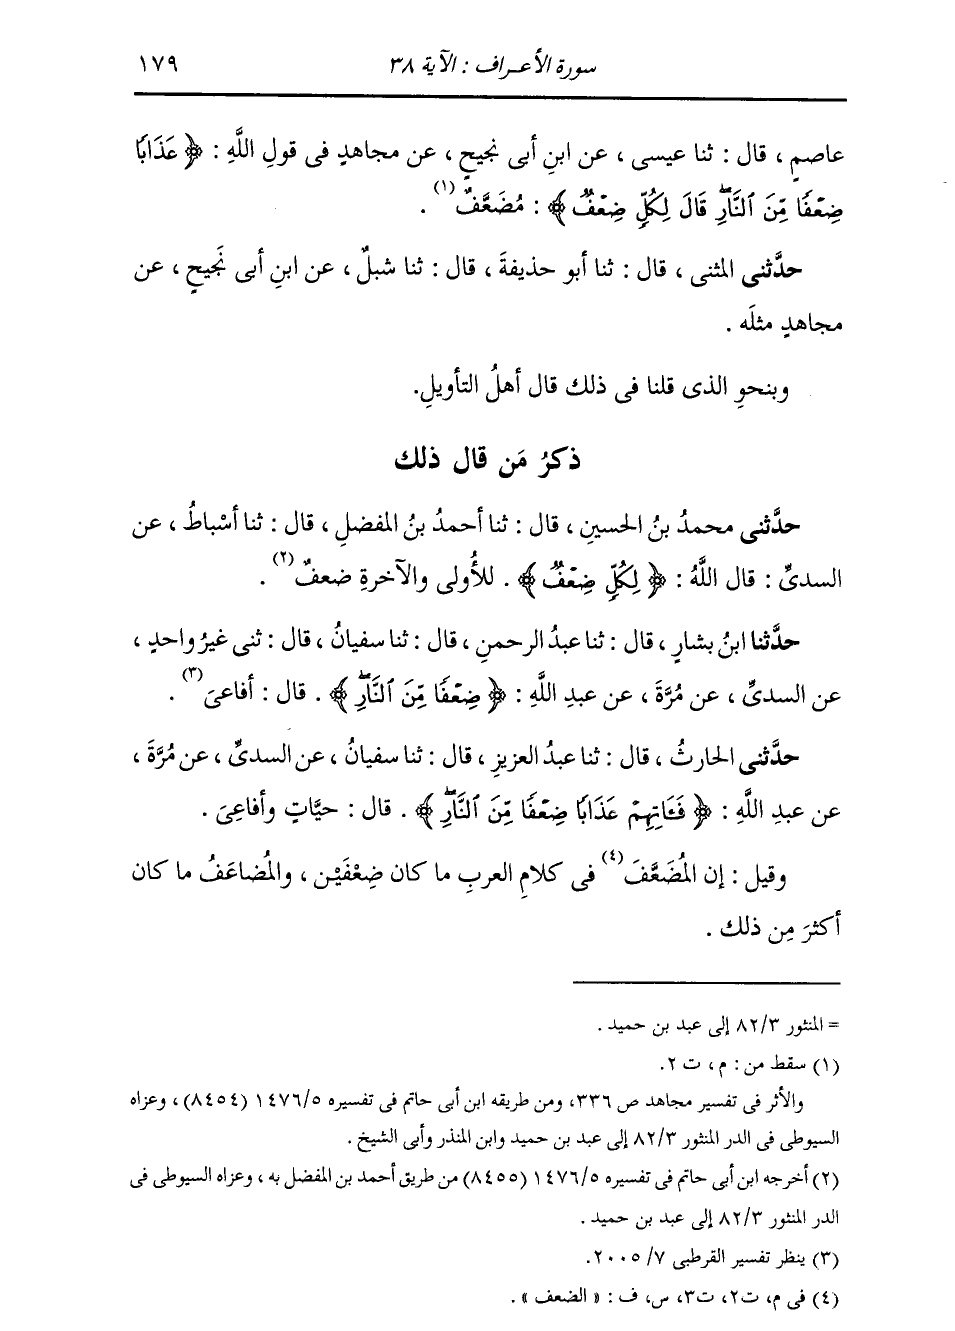 سورة الأعراف : الآية ٣٨ ١٧٩
عاصمٍ ، قال : ثنا عيسى ، عن ابنِ أبى نَجيحٍ ، عن مجاهدٍ فى قولِ اللَّهِ : ﴿ عَذَابًا
ضِعْفًا مِّنَ ٱلنَّارِۖ قَالَ لِكُلٍّ ضِعْفٌ ﴾ : مُضَعَّفٌ (١) .
حدَّثنى المثنى ، قال : ثنا أبو حذيفةَ ، قال : ثنا شبلٌ ، عن ابنِ أبى نَجيحٍ ، عن
مجاهدٍ مثلَه .
وبنحوِ الذى قلنا فى ذلك قال أهلُ التأويلِ.
ذكرُ مَن قال ذلك
حدَّثنى محمدُ بنُ الحسينِ ، قال : ثنا أحمدُ بنُ المفضلِ ، قال : ثنا أسْباطُ ، عن
السدىِّ : قال اللَّهُ : ﴿ لِكُلٍّ ضِعْفٌ ﴾ . للأُولى والآخرةِ ضعفٌ (٢) .
حدَّثنا ابنُ بشارٍ ، قال : ثنا عبدُ الرحمنِ ، قال : ثنا سفيانُ ، قال : ثنى غيرُ واحدٍ ،
عن السدىِّ ، عن مُرَّةَ ، عن عبدِ اللَّهِ : ﴿ ضِعْفًا مِّنَ ٱلنَّارِۖ ﴾ . قال : أفاعىَ (٣) .
حدَّثنى الحارثُ ، قال : ثنا عبدُ العزيزِ ، قال : ثنا سفيانُ ، عن السدىِّ ، عن مُرَّةَ ،
عن عبدِ اللَّهِ : ﴿ فَـَٔاتِهِمْ عَذَابًا ضِعْفًا مِّنَ ٱلنَّارِۖ ﴾ . قال : حيَّاتٍ وأفاعِىَ .
وقيل : إن المُضَعَّفَ (٤) فى كلامِ العربِ ما كان ضِعْفَيْن ، والمُضاعَفُ ما كان
أكثرَ مِن ذلك .
= المنثور ٨٢/٣ إلى عبد بن حميد .
(١) سقط من : م ، ت ٢.
والأثر فى تفسير مجاهد ص ٣٣٦، ومن طريقه ابن أبى حاتم فى تفسيره ١٤٧٦/٥ (٨٤٥٤) ، وعزاه
السيوطى فى الدر المنثور ٨٢/٣ إلى عبد بن حميد وابن المنذر وأبى الشيخ .
(٢) أخرجه ابن أبى حاتم فى تفسيره ١٤٧٦/٥ (٨٤٥٥) من طريق أحمد بن المفضل به ، وعزاه السيوطى فى
الدر المنثور ٨٢/٣ إلى عبد بن حميد .
(٣) ينظر تفسير القرطبى ٧/ ٢٠٠٥.
(٤) فى م، ت٢، ت٣، س، ف : « الضعف » .